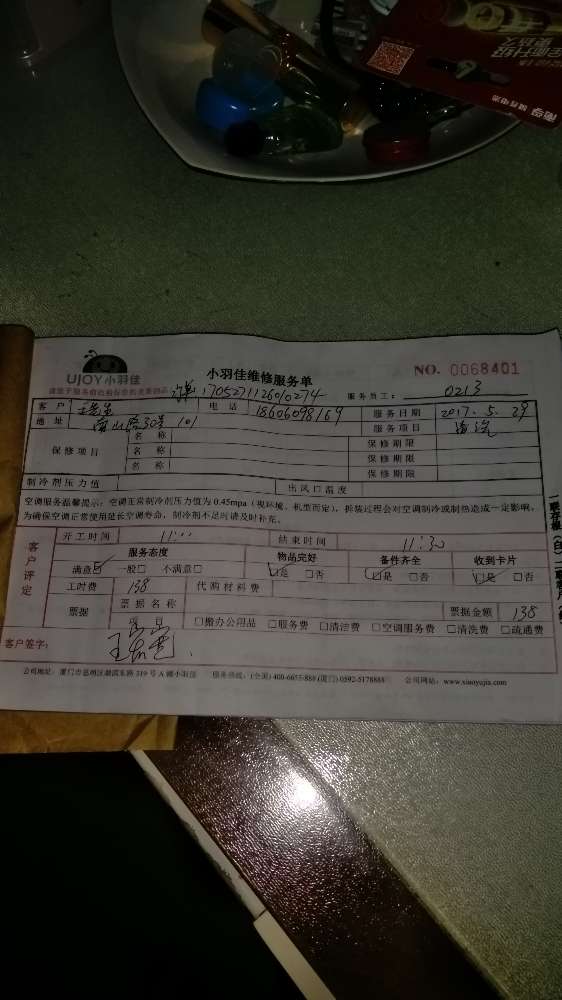 UJOY小羽佳
小羽佳维修服务单
NO. 0068401
170527112600274
服务员工： 0213
客户 电话 18606098169 服务日期 2017.5.29
地址 南山路30号101 服务项目 清洗
保修项目 名称 保修期限
名称 保修期限
名称 保修期限
制冷剂压力值 出风口温度
空调服务温馨提示：空调正常制冷剂压力值为 0.45mpa（视环境、机型而定），拆装过程会对空调制冷或制热造成一定影响，
为确保空调正常使用延长空调寿命，制冷剂不足时请及时补充。
客户评定
开工时间 11:00 结束时间 11:30
服务态度 物品完好 备件齐全 收到卡片
满意 一般 不满意 是 否 是 否 是 否
工时费 138 代购材料费
票据 票据名称 票据金额 138
项目 搬办公用品 服务费 清洁费 空调服务费 清洗费 疏通费
客户签字：
公司地址：厦门市思明区湖滨东路 319 号 A 幢小羽佳 服务热线：(全国) 400-6655-880 (厦门) 0592-5178888 公司网站：www.xiaoyujia.com